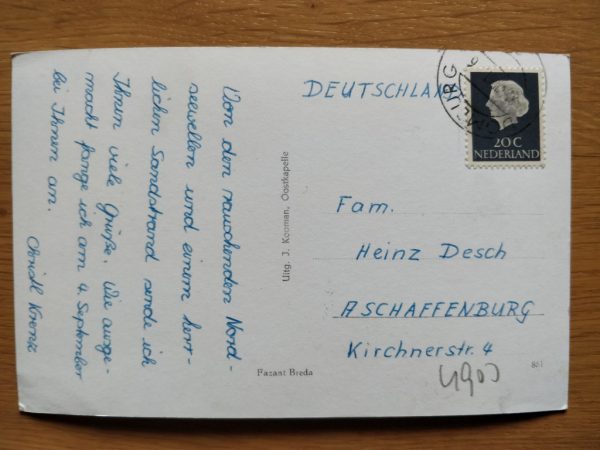 Von den rauschenden Nord-
seewellen und einem herr-
lichen Sandstrand sende ich
Ihnen viele Grüße. Wie ausge-
macht fange ich am 4. September
bei Ihnen an.
Uitg. J. Kooman, Oostkapelle
Fazant Breda
DEUTSCHLAND
BURG
20 C
NEDERLAND
Fam.
Heinz Desch
ASCHAFFENBURG
Kirchnerstr. 4
851